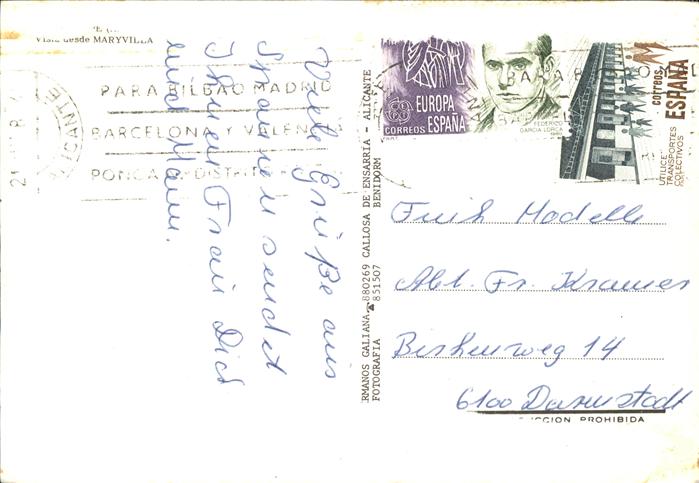 Vista desde MARYVILLA
ALICANTE
PARA BILBAO MADRID
BARCELONA Y VALEN
PONGA DISTRIT
Viele Grüße aus
Spanien sendet
Ihnen Frau Dich
und Mann.
HERMANOS GALIANA - 880269 CALLOSA DE ENSARRIA - ALICANTE
FOTOGRAFIA ☎ 851507 BENIDORM
EUROPA
CORREOS ESPAÑA
FEDERICO
GARCIA LORCA
correos
ESPAÑA
UTILICE
TRANSPORTES
COLECTIVOS
Abt. Fr. Kramer
14
6100 Darmstadt
PROHIBIDA